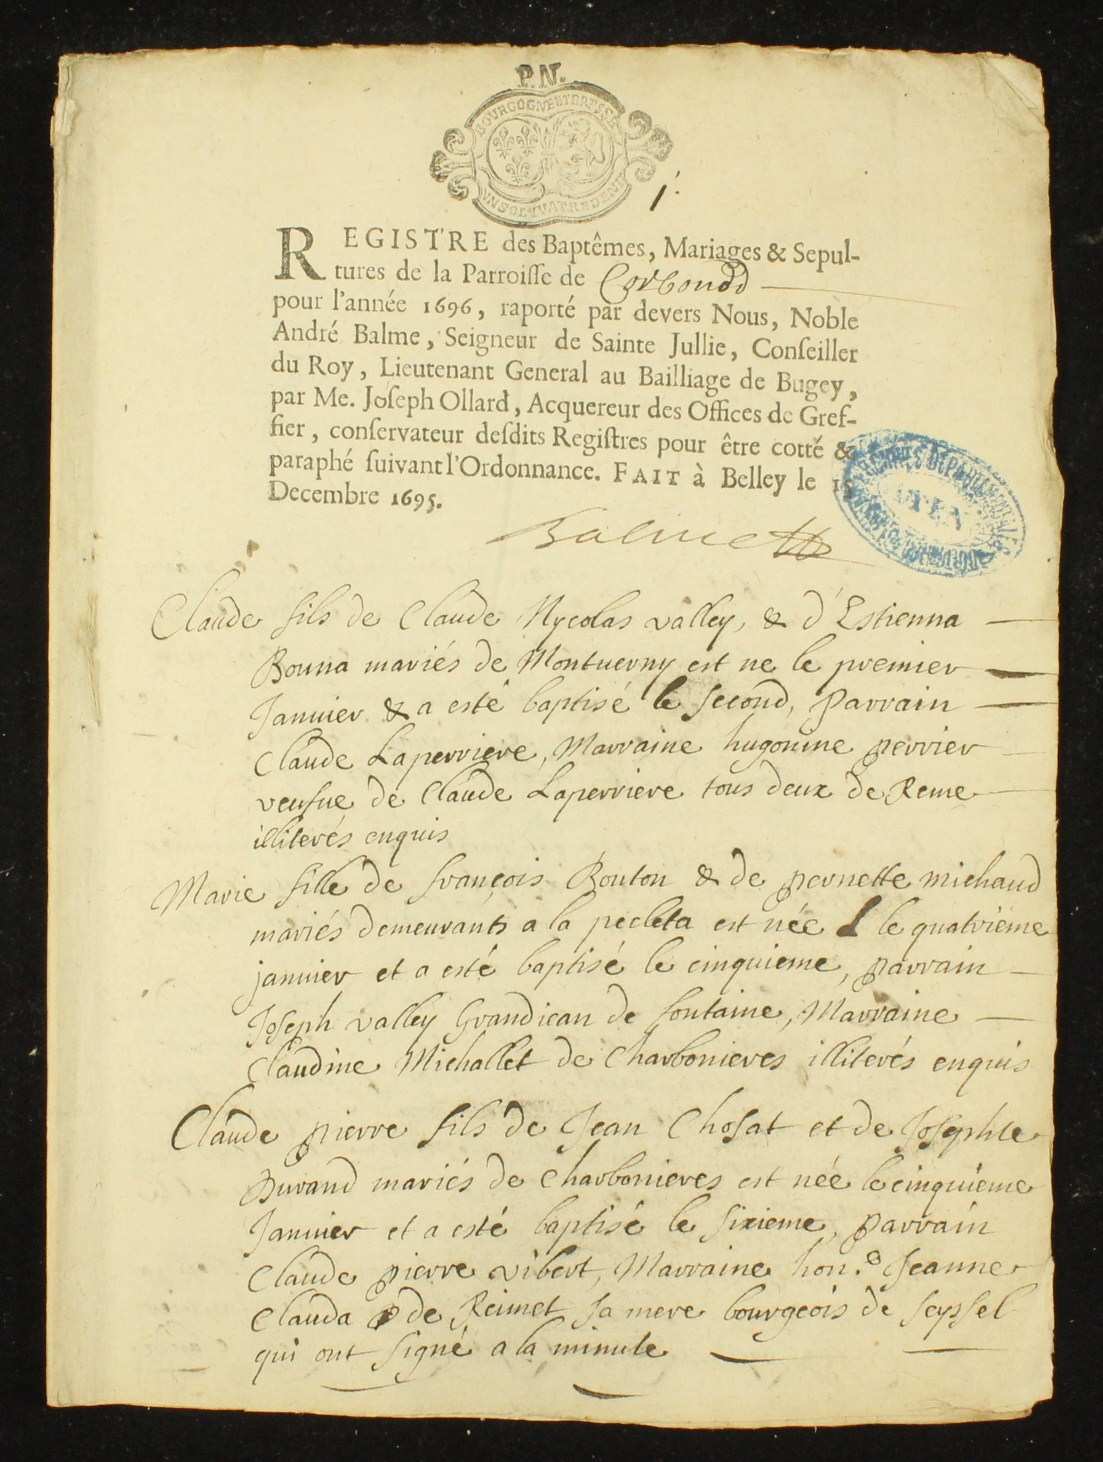 P.N.
BOURGOGNE ET BRESSE
UN SOL QUATRE DENI
1.
REGISTRE des Baptêmes, Mariages & Sepul-
tures de la Parroisse de Corbonod
pour l'année 1696, raporté par devers Nous, Noble
André Balme, Seigneur de Sainte Jullie, Conseiller
du Roy, Lieutenant General au Bailliage de Bugey,
par Me. Joseph Ollard, Acquereur des Offices de Gref-
fier, conservateur desdits Registres pour être cotté &
paraphé suivant l'Ordonnance. FAIT à Belley le 15
Decembre 1695.
ARCHIVES DEPARTEMENTALES
Balme
Claude fils de Claude Nycolas valley, & d'Estienna
Bouna mariés de Montuerny est ne le premier
Januier & a esté baptisé le second, parrain
Claude Laperriere, Marraine hugonine perrier
veufue de Claude Laperriere tous deux de Reme
illiterés enquis
Marie fille de françois Bouton & de pernette michaud
mariés demeurants a la pecleta est née le quatrieme
januier et a esté baptisé le cinquieme, parrain
Joseph valley Grandiean de fontaine, Marraine
Claudine Michallet de Charbonieres illiterés enquis
Claude pierre fils de Jean Chosat et de Josephte
Durand mariés de Charbonieres est née le cinquieme
Januier et a esté baptisé le sixieme, parrain
Claude pierre vibert, Marraine hon.e Jeanne
Clauda de Reimet sa mere bourgeois de seyssel
qui ont signé a la minute